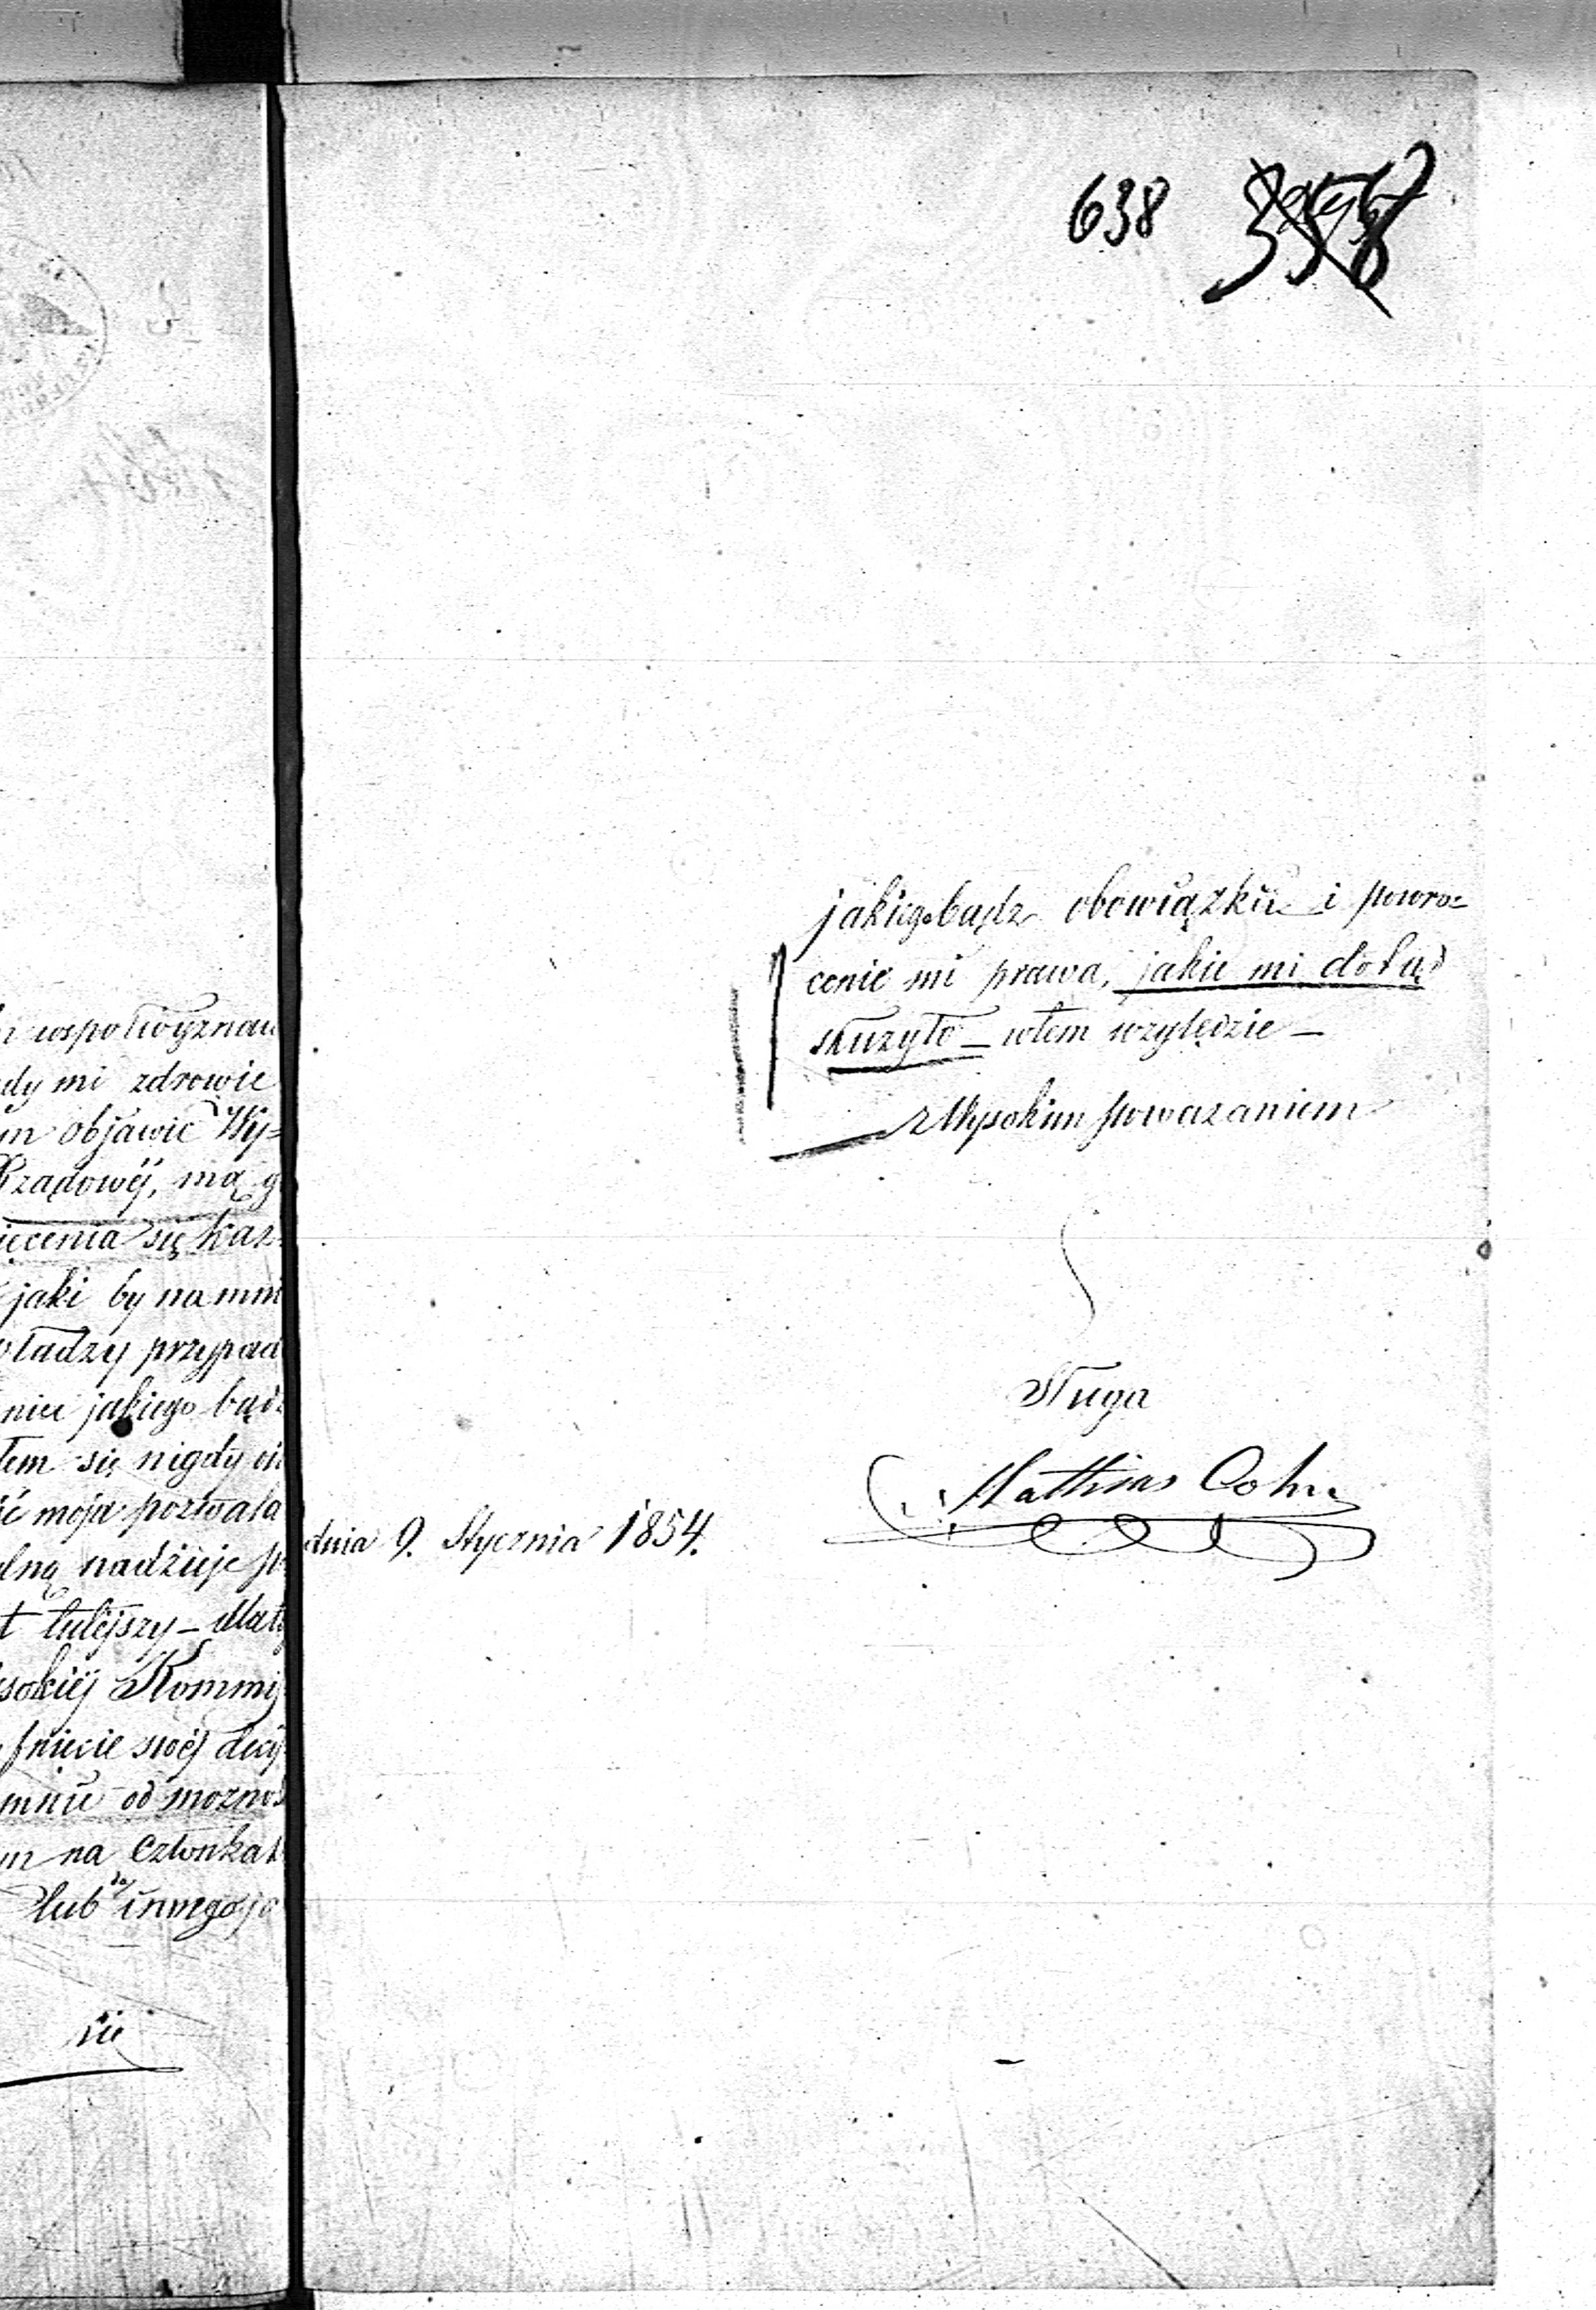 638
wspołwyznaw
dy mi zdrowie
objawić Wy=
Rządowéj, mą g
ięcenia się każ
jaki by na mni
władzy przypad
jakiego bądź
łem się nigdy
ć moja pozwala
lną nadzieje
t tutéjszy –
sokiéj Kommi
swéj decy
mnie od możno
na członka
lub innego
się
jakiegobądz obowiązku i powro=
cenie mi prawa, jakie mi dotąd
służyło – wtem względzie –
z Wysokim powazaniem
Sługa
Mathias Cohn
dnia 9. Stycznia 1854.